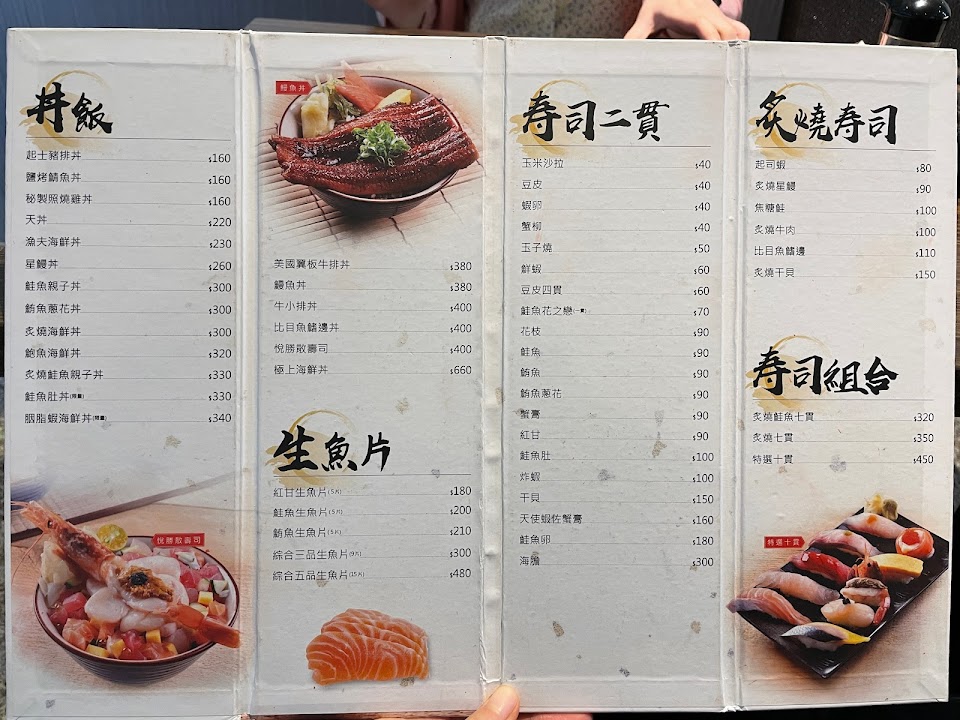 丼飯
起士豬排丼 $160
鹽烤鯖魚丼 $160
秘製照燒雞丼 $160
天丼 $220
漁夫海鮮丼 $230
星鰻丼 $260
鮭魚親子丼 $300
鮪魚蔥花丼 $300
炙燒海鮮丼 $300
鮑魚海鮮丼 $320
炙燒鮭魚親子丼 $330
鮭魚肚丼(限量) $330
胭脂蝦海鮮丼(限量) $340
悅勝散壽司
鰻魚丼
美國翼板牛排丼 $380
鰻魚丼 $380
牛小排丼 $400
比目魚鰭邊丼 $400
悅勝散壽司 $400
極上海鮮丼 $660
生魚片
紅甘生魚片(5片) $180
鮭魚生魚片(5片) $200
鮪魚生魚片(5片) $210
綜合三品生魚片(9片) $300
綜合五品生魚片(15片) $480
寿司二貫
玉米沙拉 $40
豆皮 $40
蝦卵 $40
蟹柳 $40
玉子燒 $50
鮮蝦 $60
豆皮四貫 $60
鮭魚花之戀(一貫) $70
花枝 $90
鮭魚 $90
鮪魚 $90
鮪魚蔥花 $90
蟹膏 $90
紅甘 $90
鮭魚肚 $100
炸蝦 $100
干貝 $150
天使蝦佐蟹膏 $160
鮭魚卵 $180
海膽 $300
炙燒寿司
起司蝦 $80
炙燒星鰻 $90
焦糖鮭 $100
炙燒牛肉 $100
比目魚鰭邊 $110
炙燒干貝 $150
寿司組合
炙燒鮭魚七貫 $320
炙燒七貫 $350
特選十貫 $450
特選十貫